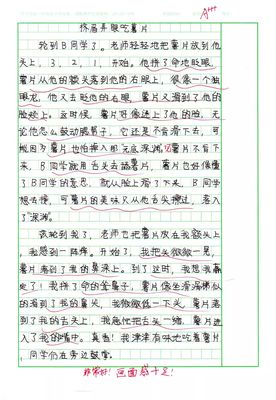 A+++
挤眉弄眼吃薯片
轮到B同学了。老师轻轻地把薯片放到他
头上,3,2,1,开始。他拼了命地眨眼,
薯片从他的额头落到他的右眼上,很像一个独
眼龙,他又去眨他的右眼,薯片又滑到了他的
脸颊上。这时候,薯片好像迷上了他的脸,无
论他怎么鼓动腮帮子,它还是不肯滑下去,可
能因为薯片也怕掉入那无底深渊,薯片不肯下
来,B同学就用舌头去舔薯片,薯片也好像懂
了B同学的意思,就从脸上滑了下来,B同学
想去接,可薯片的美味又从他舌尖擦过,落入
了“深渊”。
该轮到我了,老师也把薯片放在我额头上
,我感到一阵痒。开始了,我把头微微一晃,
薯片落到了我的鼻梁上。到了这时,我想我赢
定了!我拼了命的耸鼻子,薯片像坐滑滑梯似
的溜到了我的鼻尖,我微微低一下头,薯片落
到了我的舌头上,我急忙把舌头一缩,薯片进
入了我的嘴中。真香!我津津有味地吃着薯片
,同学们在旁边鼓掌。
非常好!画面感十足!